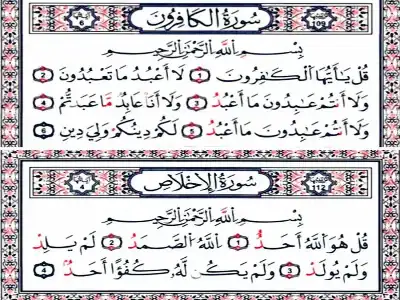 سُورَةُ الْكَافِرُونَ
بِسْمِ اللَّهِ الرَّحْمَٰنِ الرَّحِيمِ
قُلْ يَٰٓأَيُّهَا الْكَٰفِرُونَ ١ لَآ أَعْبُدُ مَا تَعْبُدُونَ ٢
وَلَآ أَنتُمْ عَٰبِدُونَ مَآ أَعْبُدُ ٣ وَلَآ أَنَا۠ عَابِدٌ مَّا عَبَدتُّمْ ٤
وَلَآ أَنتُمْ عَٰبِدُونَ مَآ أَعْبُدُ ٥ لَكُمْ دِينُكُمْ وَلِيَ دِينِ ٦
سُورَةُ الْإِخْلَاصِ
بِسْمِ اللَّهِ الرَّحْمَٰنِ الرَّحِيمِ
قُلْ هُوَ اللَّهُ أَحَدٌ ١ اللَّهُ الصَّمَدُ ٢ لَمْ يَلِدْ
وَلَمْ يُولَدْ ٣ وَلَمْ يَكُن لَّهُۥ كُفُوًا أَحَدٌ ٤